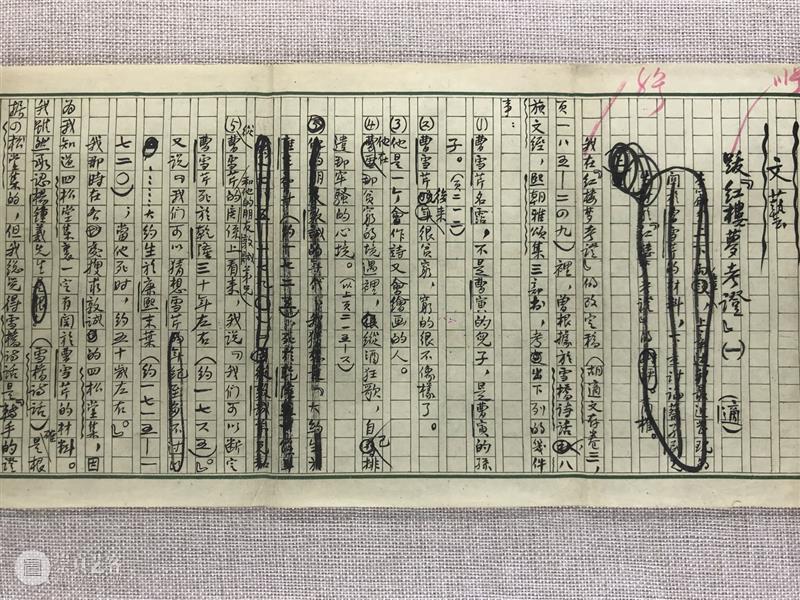 文藝
跋『紅樓夢考證』(一)　(適)
我在『紅樓夢考證』的改定稿(胡適文存卷三，
頁一八五—二四九)裡，曾根據於雪橋詩話，八
旗文經，熙朝雅頌集三部書，考出下列的幾件
事：
(1)曹雪芹名霑，不是曹寅的兒子，是曹寅的孫
子。(頁二一二)
(2)曹雪芹後來很貧窮，窮的很不像樣了。
(3)他是一個會作詩又會繪画的人。
(4)他在那貧窮的境遇裡，縱酒狂歌，自己排
遣那牢騷的心境。(以上頁二一五—六)
(5)從曹雪芹和他的朋友敦誠弟兄的関係上看來，我說『我們可以断定
曹雪芹死於乾隆三十年左右(約一七六五)。』
又說『我們可以猜想雪芹
……大約生於康熙末葉(約一七一五—一
七二〇)；當他死时，約五十歲左右。』
我那时在各處搜求敦誠的四松堂集，因
為我知道四松堂集裏一定有関於曹雪芹的材料。
我雖然承認楊鍾羲先生(雪橋詩話)確是根
據四松堂集的，但我總覺得雪橋詩話是『轉手的證